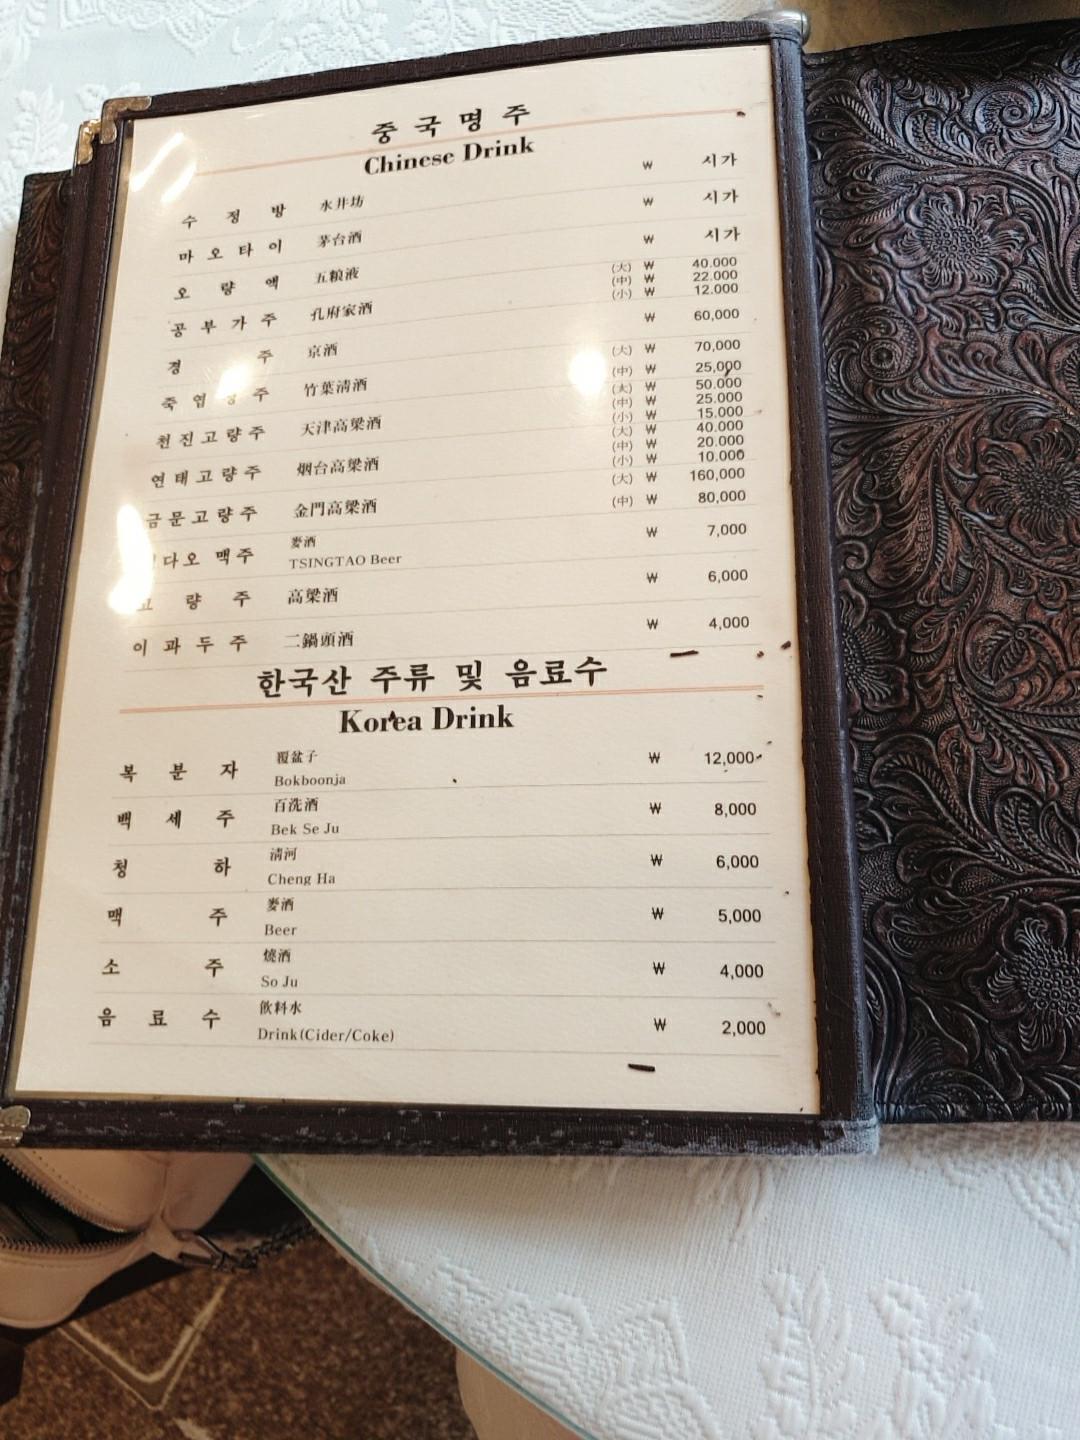 중국명주
Chinese Drink
수정방 水井坊 ₩ 시가
마오타이 茅台酒 ₩ 시가
오량액 五粮液 ₩ 시가
공부가주 孔府家酒 (大) ₩ 40.000
(中) ₩ 22.000
(小) ₩ 12.000
경주 京酒 ₩ 60,000
죽엽청주 竹葉淸酒 (大) ₩ 70,000
(中) ₩ 25,000
천진고량주 天津高粱酒 (大) ₩ 50.000
(中) ₩ 25.000
(小) ₩ 15.000
연태고량주 烟台高粱酒 (大) ₩ 40.000
(中) ₩ 20.000
(小) ₩ 10.000
금문고량주 金門高粱酒 (大) ₩ 160,000
(中) ₩ 80,000
다오 맥주 麥酒 ₩ 7,000
TSINGTAO Beer
고량주 高粱酒 ₩ 6,000
이과두주 二鍋頭酒 ₩ 4,000
한국산 주류 및 음료수
Korea Drink
복분자 覆盆子 ₩ 12,000
Bokboonja
백세주 百洗酒 ₩ 8,000
Bek Se Ju
청하 淸河 ₩ 6,000
Cheng Ha
맥주 麥酒 ₩ 5,000
Beer
소주 燒酒 ₩ 4,000
So Ju
음료수 飮料水 ₩ 2,000
Drink(Cider/Coke)